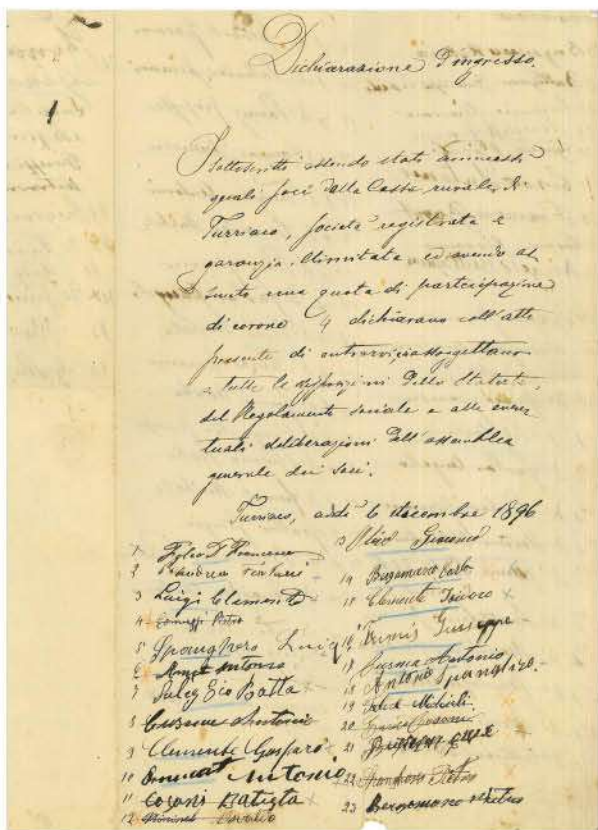 Dichiarazione d'ingresso.
I sottoscritti essendo stati ammessi
quali soci della Cassa rurale di
Turriaco, società registrata a
garanzia illimitata ed avendo as
sunto una quota di partecipazione
di corone 4 dichiarano coll'atto
presente di entrarvi, assoggettano
a tutte le disposizioni dello Statuto,
del Regolamento sociale e alle even
tuali deliberazioni dell'assemblea
generale dei soci.
Turriaco, addì 6 dicembre 1896
1 Francesco
2
3 Luigi Clemente
4 Pietro
5 Spanghero Luigi
6 Antonio
7 Batta
8 Cusma Antonio
9 Clemente Gasparo
10 Antonio
11 Cosani Batista
12 Osvaldo
3 Giacomo
14 Bergamasco Carlo
15 Clemente Isidoro
16 Giuseppe
17 Cusma Antonio
18 Antonio Spanghero
19
20 Cosani
21
22 Spanghero Pietro
23 Bergamasco Pietro